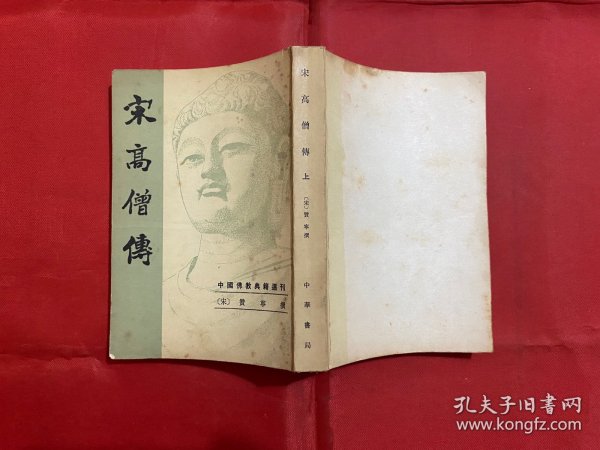 宋高僧傳
中國佛教典籍選刊
〔宋〕贊寧撰
宋高僧傳 上
〔宋〕贊寧撰
中華書局
孔夫子旧书网
www.kongfz.com